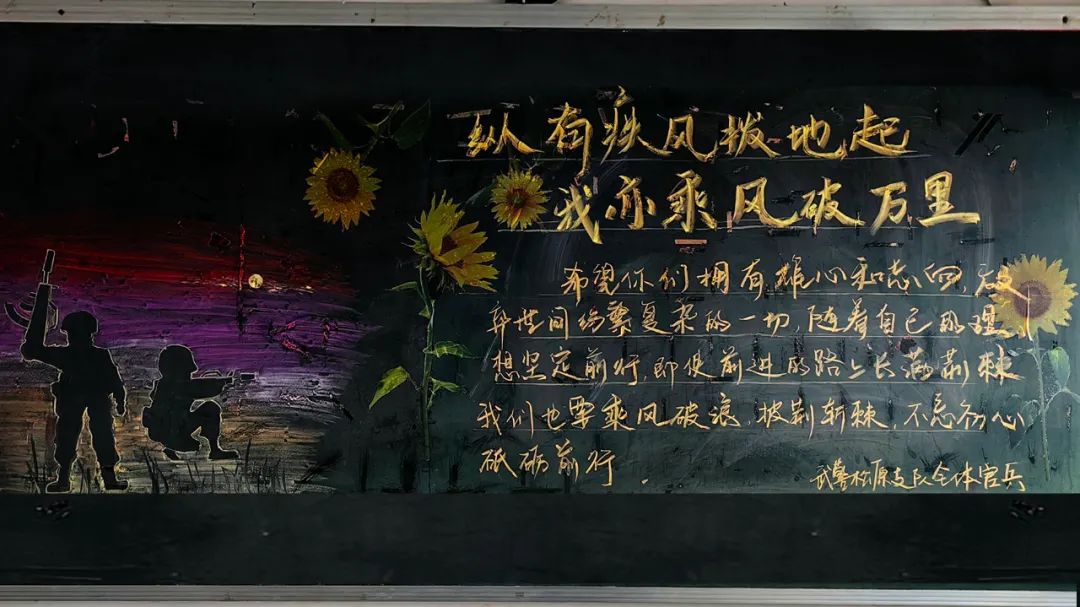 纵有疾风拨地起
我亦乘风破万里
希望你们拥有雄心和志向,破
碎世间纷繁复杂的一切,随着自己的理
想坚定前行,即使前进的路上长满荆棘
我们也要乘风破浪,披荆斩棘,不忘初心
砥砺前行
武警松原支队全体官兵